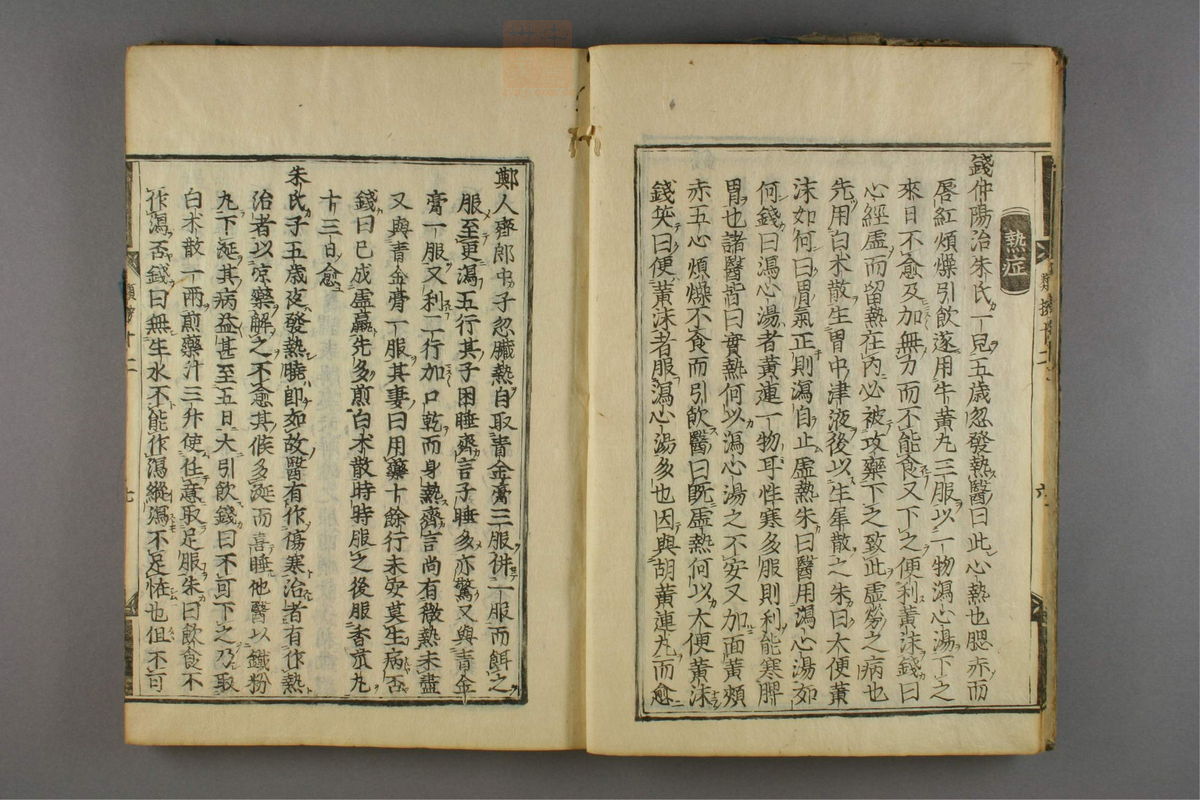 熱症
錢仲陽治朱氏一兒五歲忽發熱醫曰此心熱也腮赤而
唇紅煩燥引飲遂用牛黃丸三服以一物瀉心湯下之
來日不愈及加無力而不能食又下之便利黃沫錢曰
心經虛而留熱在內必被攻藥下之致此虛勞之病也
先用白朮散生胃中津液後以生犀散之朱曰大便黃
沫如何曰胃氣正則瀉自止虛熱朱曰醫用瀉心湯如
何錢曰瀉心湯者黃連一物耳性寒多服則利能寒脾
胃也諸醫皆曰實熱何以瀉心湯之不安又加面黃頰
赤五心煩燥不食而引飲醫曰既虛熱何以大便黃沫
錢笑曰便黃沫者服瀉心湯多也因與胡黃連丸而愈
鄭人齊郎中子忽臟熱自取青金膏三服併一服而餌之
服至更瀉五行其子困睡齊言子睡多亦驚又與青金
膏一服又利一行加口乾而身熱齊言尚有微熱未盡
又與青金膏一服其妻曰用藥十餘行未安莫生病否
錢曰已成虛羸先多煎白朮散時時服之後服香瓜丸
十三日愈
朱氏子五歲夜發熱曉即如故醫有作傷寒治者有作熱
治者以涼藥解之不愈其候多涎而喜睡他醫以鐵粉
丸下涎其病益甚至五日大引飲錢曰不可下之乃取
白朮散一兩煎藥汁三升使任意取足服朱曰飲食不
作瀉否錢曰無生水不能作瀉縱瀉不足怪也但不可
七